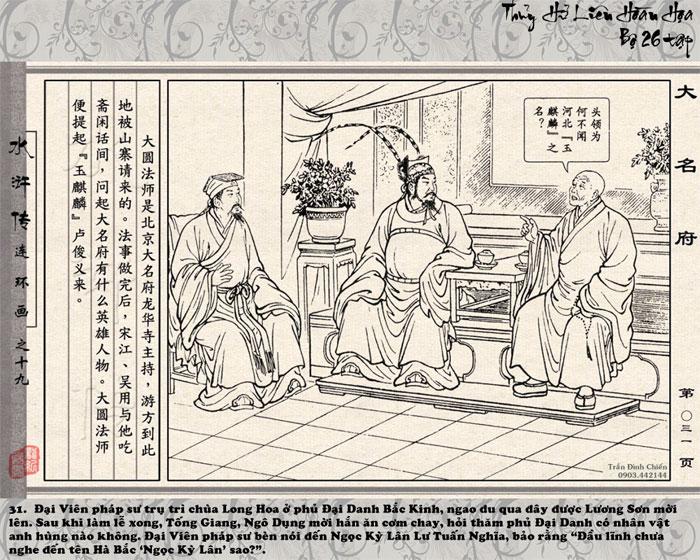 Thủy Hử Liên Hoàn Họa
Bộ 26 tập
大名府
头领为
何不闻
河北『玉
麒麟』之
名？
大圆法师是北京大名府龙华寺主持，游方到此
地被山寨请来的。法事做完后，宋江、吴用与他吃
斋闲话间，问起大名府有什么英雄人物。大圆法师
便提起『玉麒麟』卢俊义来。
水浒传连环画之十九
第〇三一页
Trần Đình Chiến
0903.442144
31. Đại Viên pháp sư trụ trì chùa Long Hoa ở phủ Đại Danh Bắc Kinh, ngao du qua đây được Lương Sơn mời
lên. Sau khi làm lễ xong, Tống Giang, Ngô Dụng mời hắn ăn cơm chay, hỏi thăm phủ Đại Danh có nhân vật
anh hùng nào không. Đại Viên pháp sư bèn nói đến Ngọc Kỳ Lân Lư Tuấn Nghĩa, bảo rằng “Đầu lĩnh chưa
nghe đến tên Hà Bắc ‘Ngọc Kỳ Lân’ sao?”.